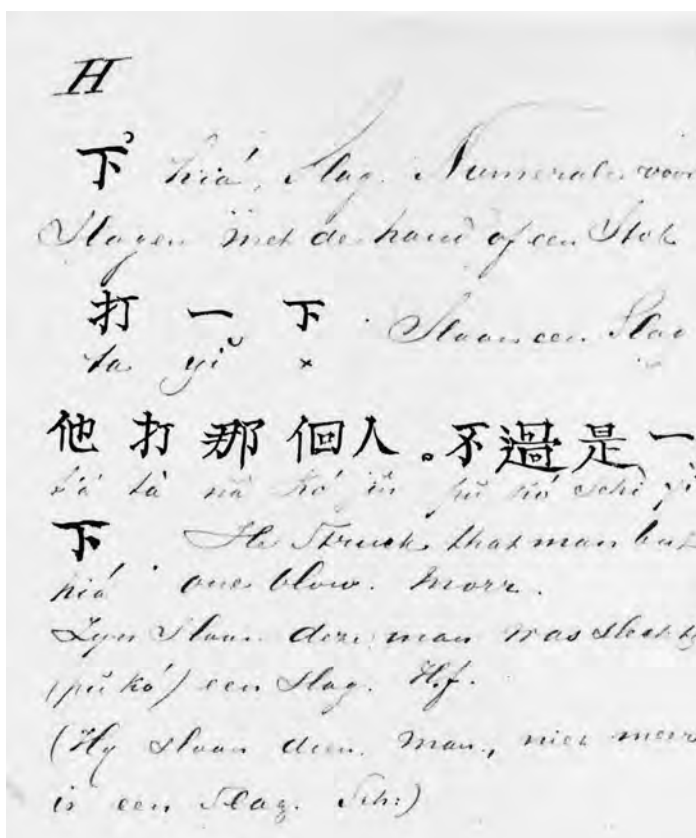 H
下 hiá, Slag. Numerale voor
Slagen met de hand of een Stok
打 一 下 Slaan een Slag
ta yĭ ×
他 打 那 個 人。不 過 是 一
t'á tà ná kó jin pŭ kó schi yĭ
下 He Struck that man but
hiá one blow. Morr.
Zyn Slaan dien man was slechts
(pŭ kó) een Slag. Hf.
(Hy slaan dien man, niet meer
is een Slag. Sch:)